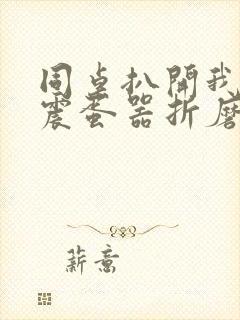 同桌扒開我
震蛋器折磨
薪意